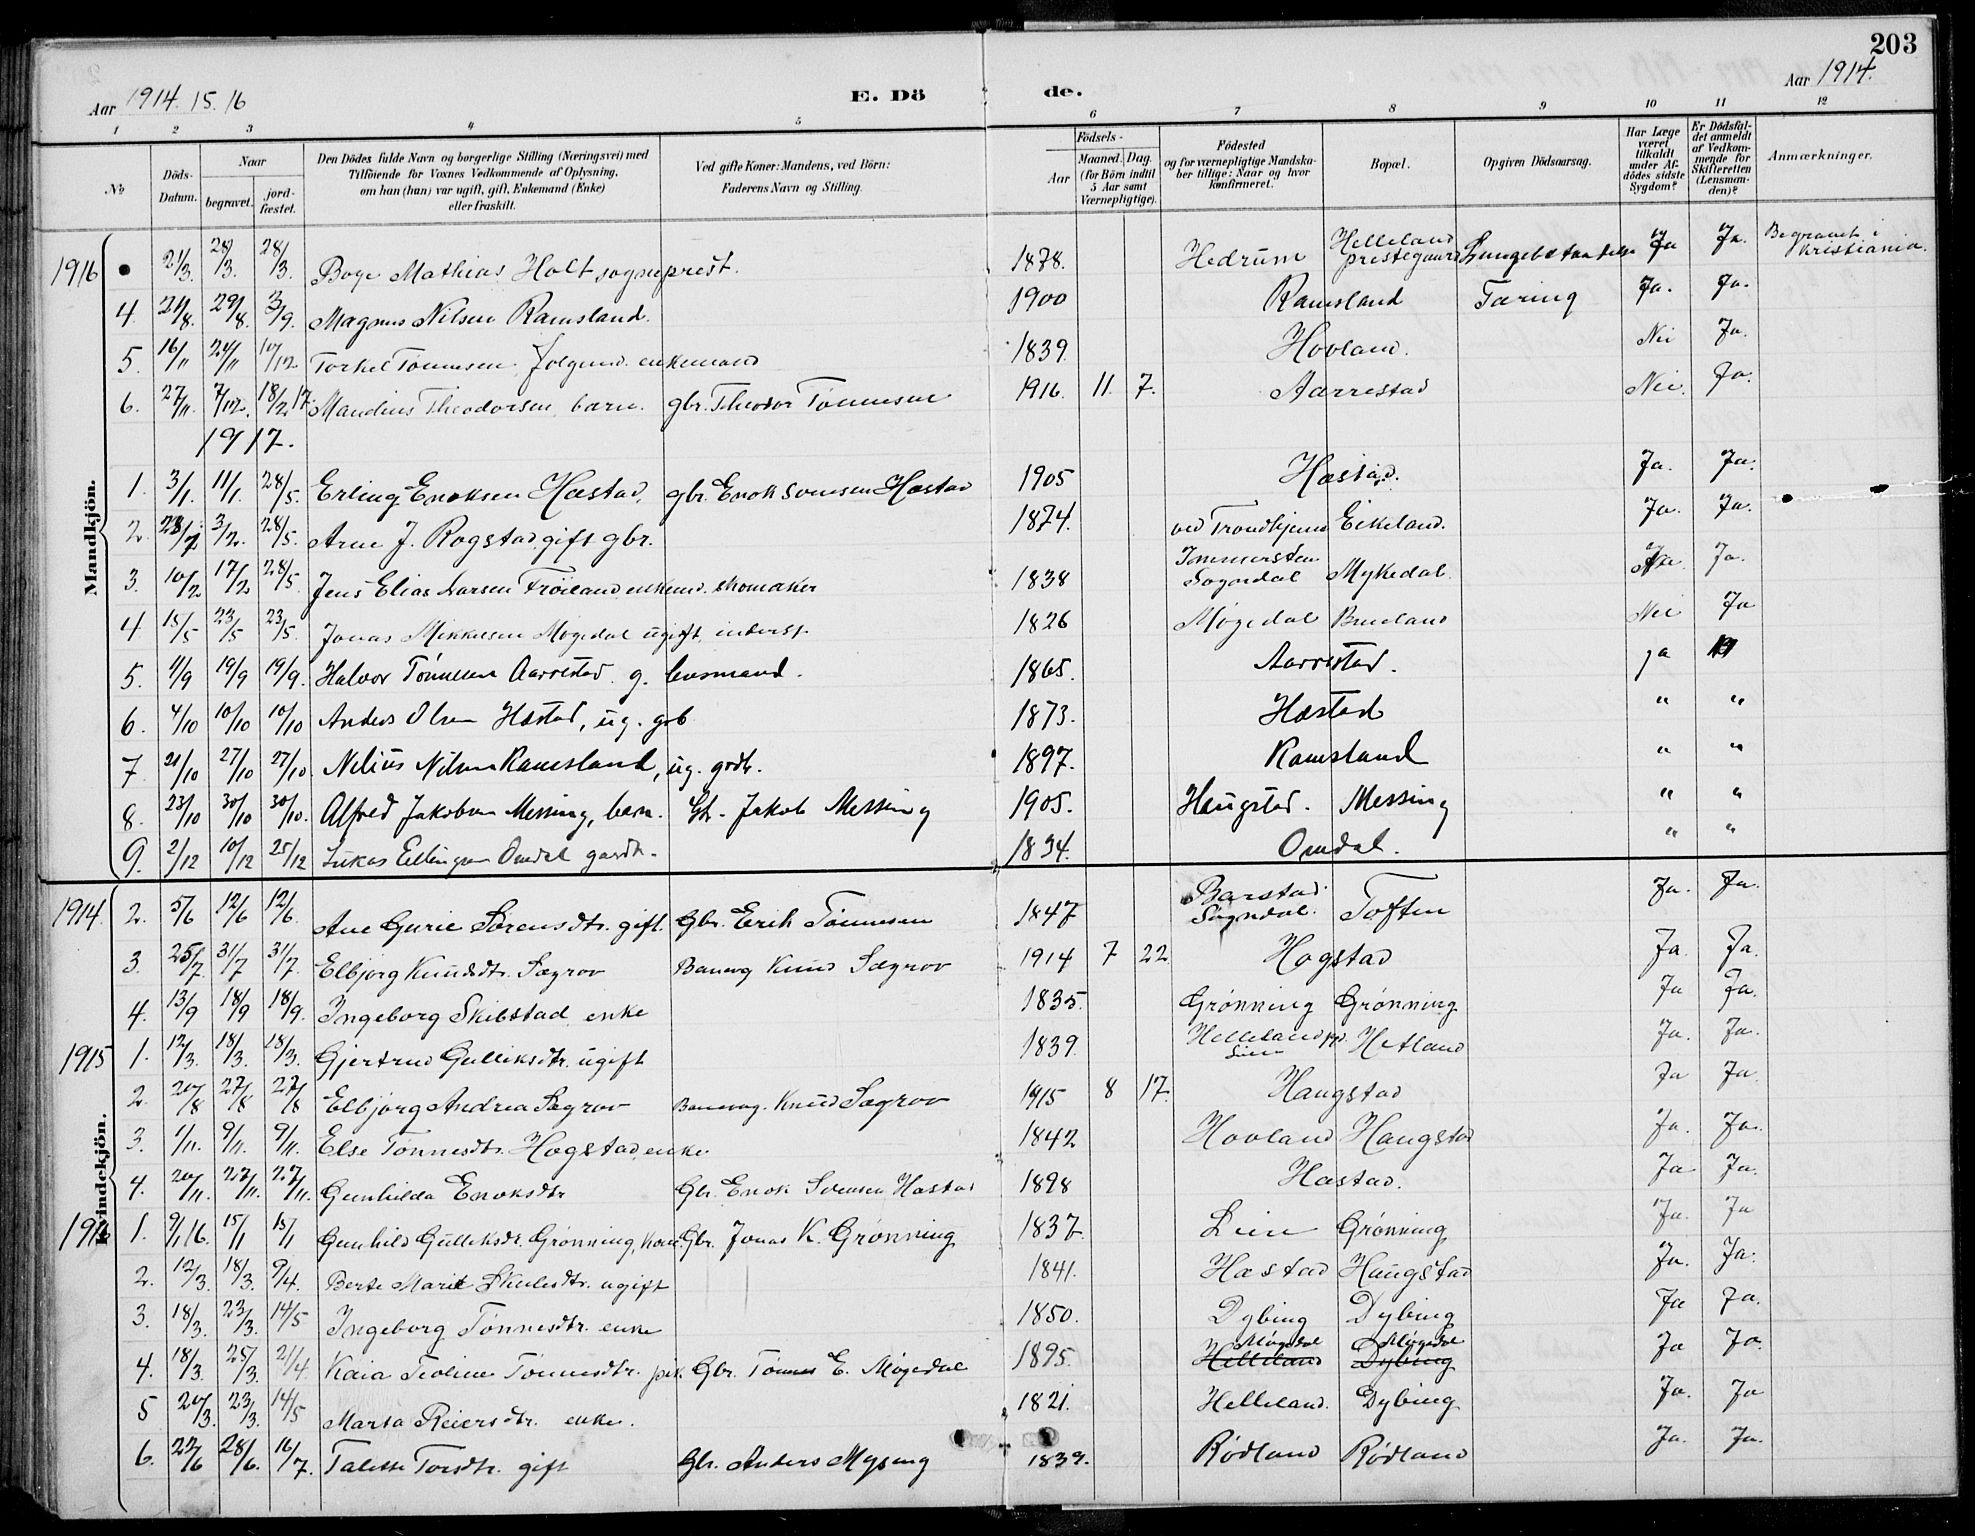 203
Aar 1914. 15. 16
E. Dö de.
Aar 1914.
1 2 3 4 5 6 7 8 9 10 11 12
№
Döds-Datum.
Naar
begravet.
jord-fæstet.
Den Dödes fulde Navn og borgerlige Stilling (Næringsvei) med
Tilföiende for Voxnes Vedkommende af Oplysning,
om han (hun) var ugift, gift, Enkemand (Enke)
eller fraskilt.
Ved gifte Koner: Mandens, ved Börn:
Faderens Navn og Stilling.
Födsels-
Aar
Maaned. Dag.
(for Börn indtil
5 Aar samt
Værnepligtige).
Födested
og for værnepligtige Mandska-
ber tillige: Naar og hvor
konfirmeret.
Bopæl.
Opgiven Dödsaarsag.
Har Læge
været
tilkaldt
under Af-
dödes sidste
Sygdom?
Er Dödsfal-
det anmeldt
af Vedkom-
mende for
Skifteretten
(Lensman-
den)?
Anmærkninger.
Mandkjön.
1916 21/3. 28/3. 28/3. Boye Mathias Holt, sogneprest. 1878. Hedrum Helleland prestegaard Lungebetændelse Ja Ja. Begravet i Kristiania.
4. 21/8. 29/8. 3/9. Magnus Nilsen Ramsland. 1900 Ramsland Tæring Ja. Ja.
5. 16/11 24/11 10/12 Torkel Tønnesen, folgemd. enkemand 1839. Hovland. Nei Ja.
6. 27/11. 7/12. 18/2 17. Mandius Theodorsen, barn. gbr. Theodor Tønnesen 1916. 11. 7. Aarrestad Nei. Ja.
1917.
1. 3/1. 11/1. 28/5. Erling Enoksen Hæstad, gbr. Enok Svensen Hæstad 1905 Hæstad. Ja. Ja.
2. 28/1 3/2. 28/5. Arne J. Rogstad. gift gbr. 1874. ved Trondhjem Eikeland. Ja. Ja.
3. 10/2 17/2 28/5. Jens Elias Larsen Frøiland enkemd. skomaker 1838 Immersten Sogndal Mykedal. Ja.
4. 15/5 23/5 23/5. Jonas Mikkelsen Møgedal ugift, inderst. 1826 Møgedal Brueland Nei Ja
5. 11/9 19/9 19/9. Halvor Tønnesen Aarrestad. g. husmand. 1865. Aarrestad. ja
6. 4/10 10/10 10/10 Anders Olsen Hæstad, ug. grb 1873. Hæstad " "
7. 21/10 27/10 27/10. Nilius Nilsen Ramsland, ug. grdb. 1897. Ramsland " "
8. 23/10 30/10 30/10. Alfred Jakobsen Messing, barn. Gb. Jakob Messing 1905. Haugstad. Messing " "
9. 2/12 10/12 25/12 Lukas Ellingsen Omdal gardb. 1834. Omdal. " "
Kvindekjön.
1914. 2. 5/6 12/6 12/6. Ane Gurie Sørensdtr. gift. Gbr. Erik Tønnesen 1847 Barstad Sogndal. Toften Ja. Ja.
3. 25/7 31/7 31/7. Elbjorg Knudsdtr. Sægrov Banevog Knud Sægrov 1914 7 22 Hogstad Ja. Ja.
4. 13/9 18/9 18/9. Ingeborg Skibstad, enke 1835. Grønning Grønning Ja Ja.
1915 1. 12/3. 18/3. 18/3. Gjertrud Gulliksdtr. ugift 1839. Helleland Hetland Ja. Ja.
2. 20/8 27/8 27/8 Elbjørg Andrea Sægrov Banevog. Knud Sægrov 1915 8 17. Haugstad Ja Ja.
3. 1/11. 9/11. 9/11. Else Tønnesdtr. Hogstad enke 1842 Hovland Haugstad Ja. Ja.
4. 20/11. 27/11. 27/11. Gunhilda Enoksdtr Gbr. Enok Svensen Hæstad 1898 Hæstad. Ja Ja.
1916 1. 9/1 16. 15/1 15/1 Gunhild Gulliksdt. Grønning, kone. Gbr. Jonas K. Grønning 1837 Lien Grønning Ja. Ja
2. 12/3. 18/3. 9/4. Berte Marie Skulesdtr. ugift 1841. Hæstad Haugstad Ja. Ja.
3. 18/3. 23/3. 14/5 Ingeborg Tønnesdtr. enke 1850. Dybing Dybing Ja Ja.
4. 18/3. 25/3. 2/4. Kaia Teoline Tønnesdtr. pik. Gbr. Tønnes E. Møgedal 1895. Møgedal Helleland Møgedal Dybing Ja Ja.
5 20/3. 23/3. 14/5 Marta Reiersdtr. enke. 1821. Helleland. Dybing Ja. Ja
6. 22/6 28/6. 16/7. Talette Torsdtr. gift Gbr. Anders Mysing 1839. Rødland Rødland Ja. Ja.